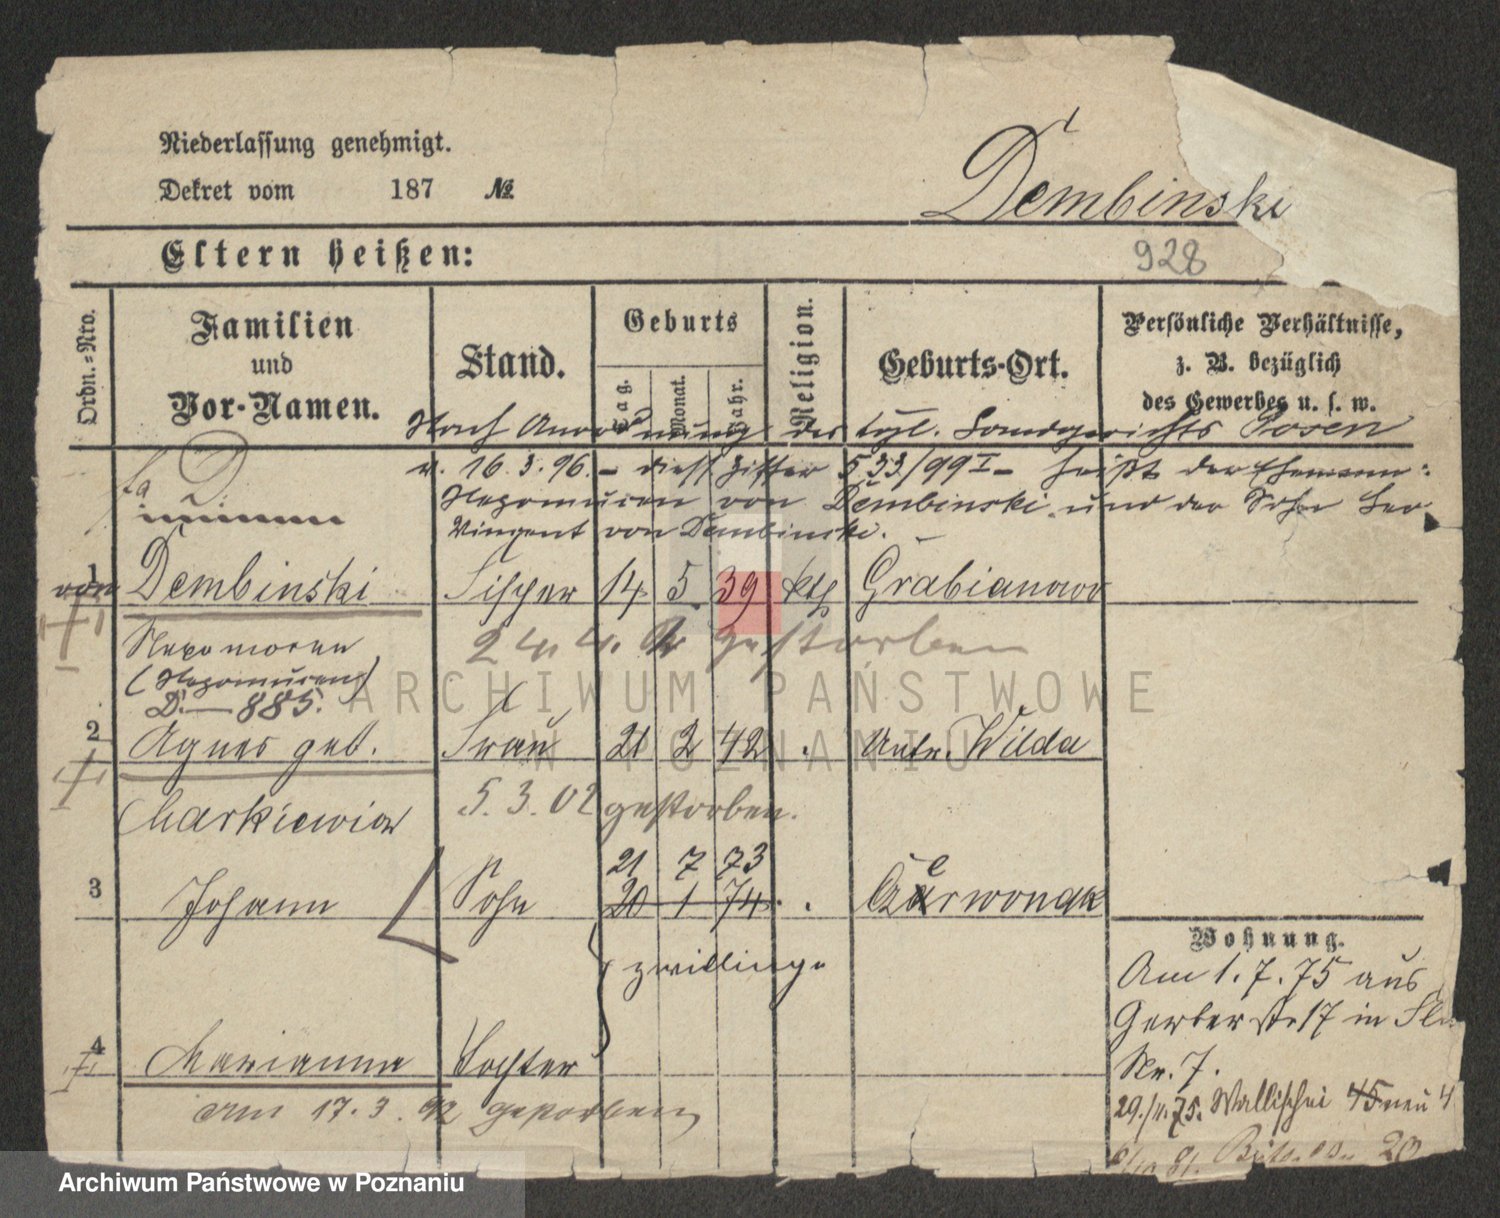 Niederlassung genehmigt.
Dekret vom 187 №
Dembinski
Eltern heißen:
928
Ordn.=Nro.
Familien
und
Vor-Namen.
Stand.
Geburts
Tag.
Monat.
Jahr.
Religion.
Geburts-Ort.
Persönliche Verhältnisse,
z. B. bezüglich
des Gewerbes u. s. w.
Nach Anordnung des kgl. Landgerichts Posen
v. 16.3.96. – 533/99 I – heißt der Ehemann:
Nepomucen von Dembinski und der Sohn
Vincent von Dembinski.
1
von Dembinski Fischer 14 5 39 kth Grabianowo
Nepomucen
24.4. gestorben
(Nepomucen)
D. — 885.
2
Agnes geb. Frau 21 2 42 Unter Wilda
Markiewicz 5.3.02 gestorben.
21 7 73
3
Johann Sohn 20 1 74 Czerwonak
Zwillinge
Wohnung.
Am 1.7.75 aus
Gerber str 17 in
Nr. 7.
4
Marianna Tochter
29./11.75. Wallischei 45 neu 4
Am 17.3.92 gestorben
20
ARCHIWUM PAŃSTWOWE
W POZNANIU
Archiwum Państwowe w Poznaniu